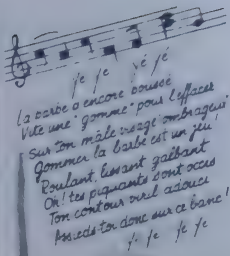 Ye Ye Yé Yé
La barbe a encore poussé
Vite une "gomme" pour l'effacer
Sur ton mâle visage ombrageux
Gommer la barbe est un jeu!
Roulant, lissant, galbant
Oh! tes piquants sont occis
Ton contour viril adouci
Assieds-toi donc sur ce banc!
Ye Ye Ye Ye